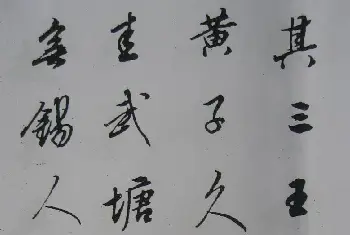 其三王
黄子久
圭武塘
無錫人